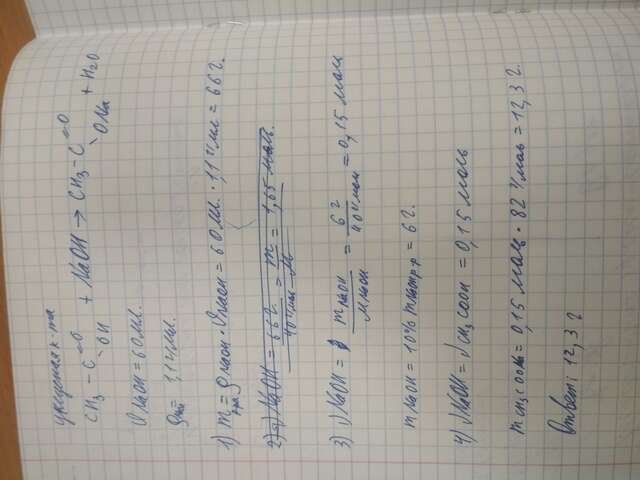 уксусная к-та
CH₃ – C =O \ OH + NaOH → CH₃ – C =O \ ONa + H₂O
V NaOH = 60 мл.
ρ = 1,1 г/мл.
1) m р-ра = ρ NaOH · V NaOH = 60 мл. · 1,1 г/мл = 66 г.
3) ν NaOH = m NaOH / M NaOH = 6 г / 40 г/мол = 0,15 мол
m NaOH = 10% m р-р = 6 г.
4) ν NaOH = ν CH₃COOH = 0,15 моль
m CH₃COONa = 0,15 моль · 82 г/моль = 12,3 г.
Ответ: 12,3 г